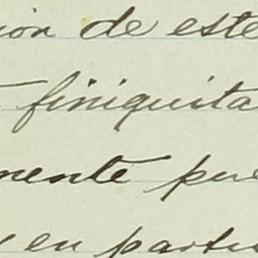 ion de este
finiquita
mente pue
y en partu